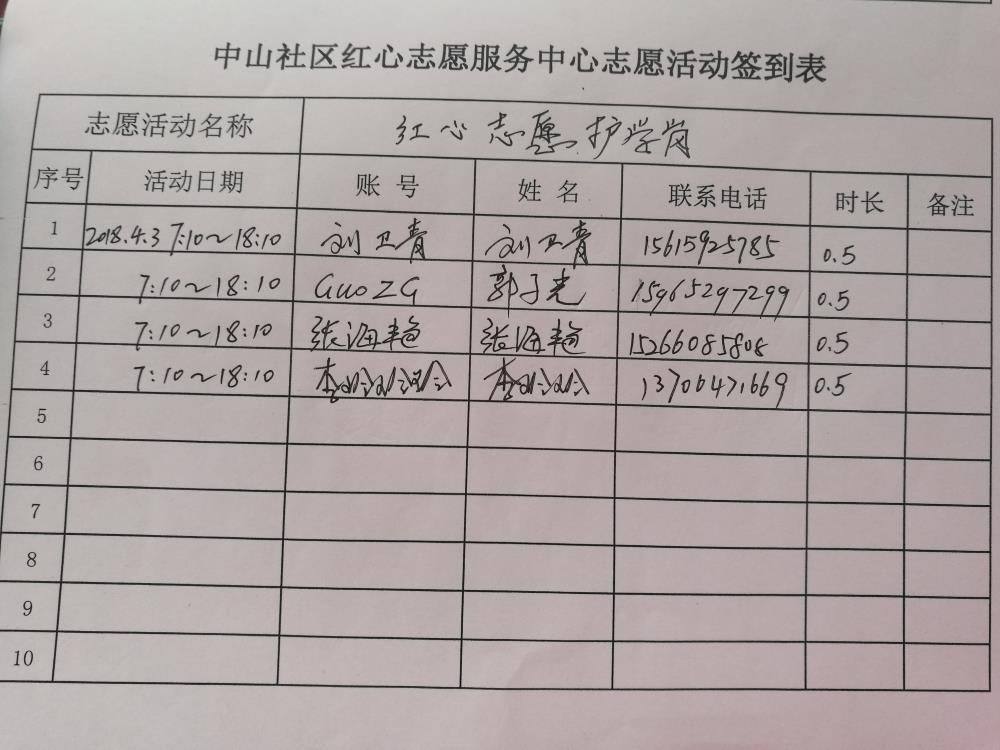 中山社区红心志愿服务中心志愿活动签到表
志愿活动名称 红心志愿护学岗
序号 活动日期 账号 姓名 联系电话 时长 备注
1 2018.4.3 7:10~18:10 刘卫青 刘卫青 15615925785 0.5
2 7:10~18:10 GuoZG 郭子光 15965297299 0.5
3 7:10~18:10 张海艳 张海艳 15266085808 0.5
4 7:10~18:10 13706471669 0.5
5
6
7
8
9
10